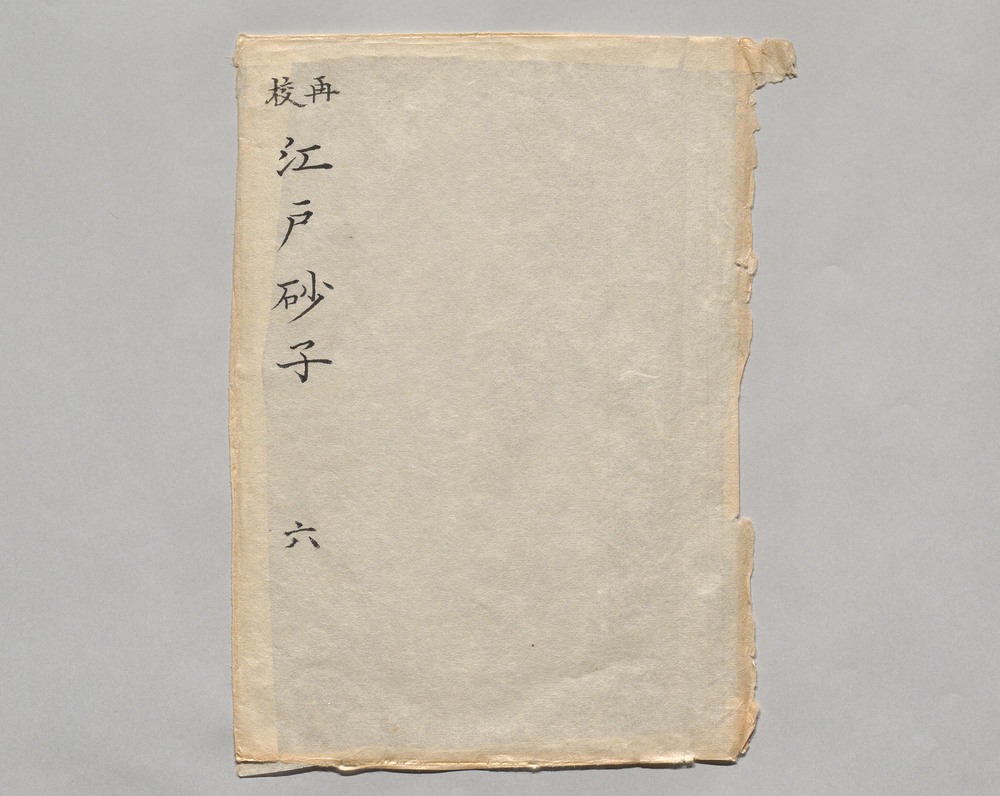 再校江戸砂子 六